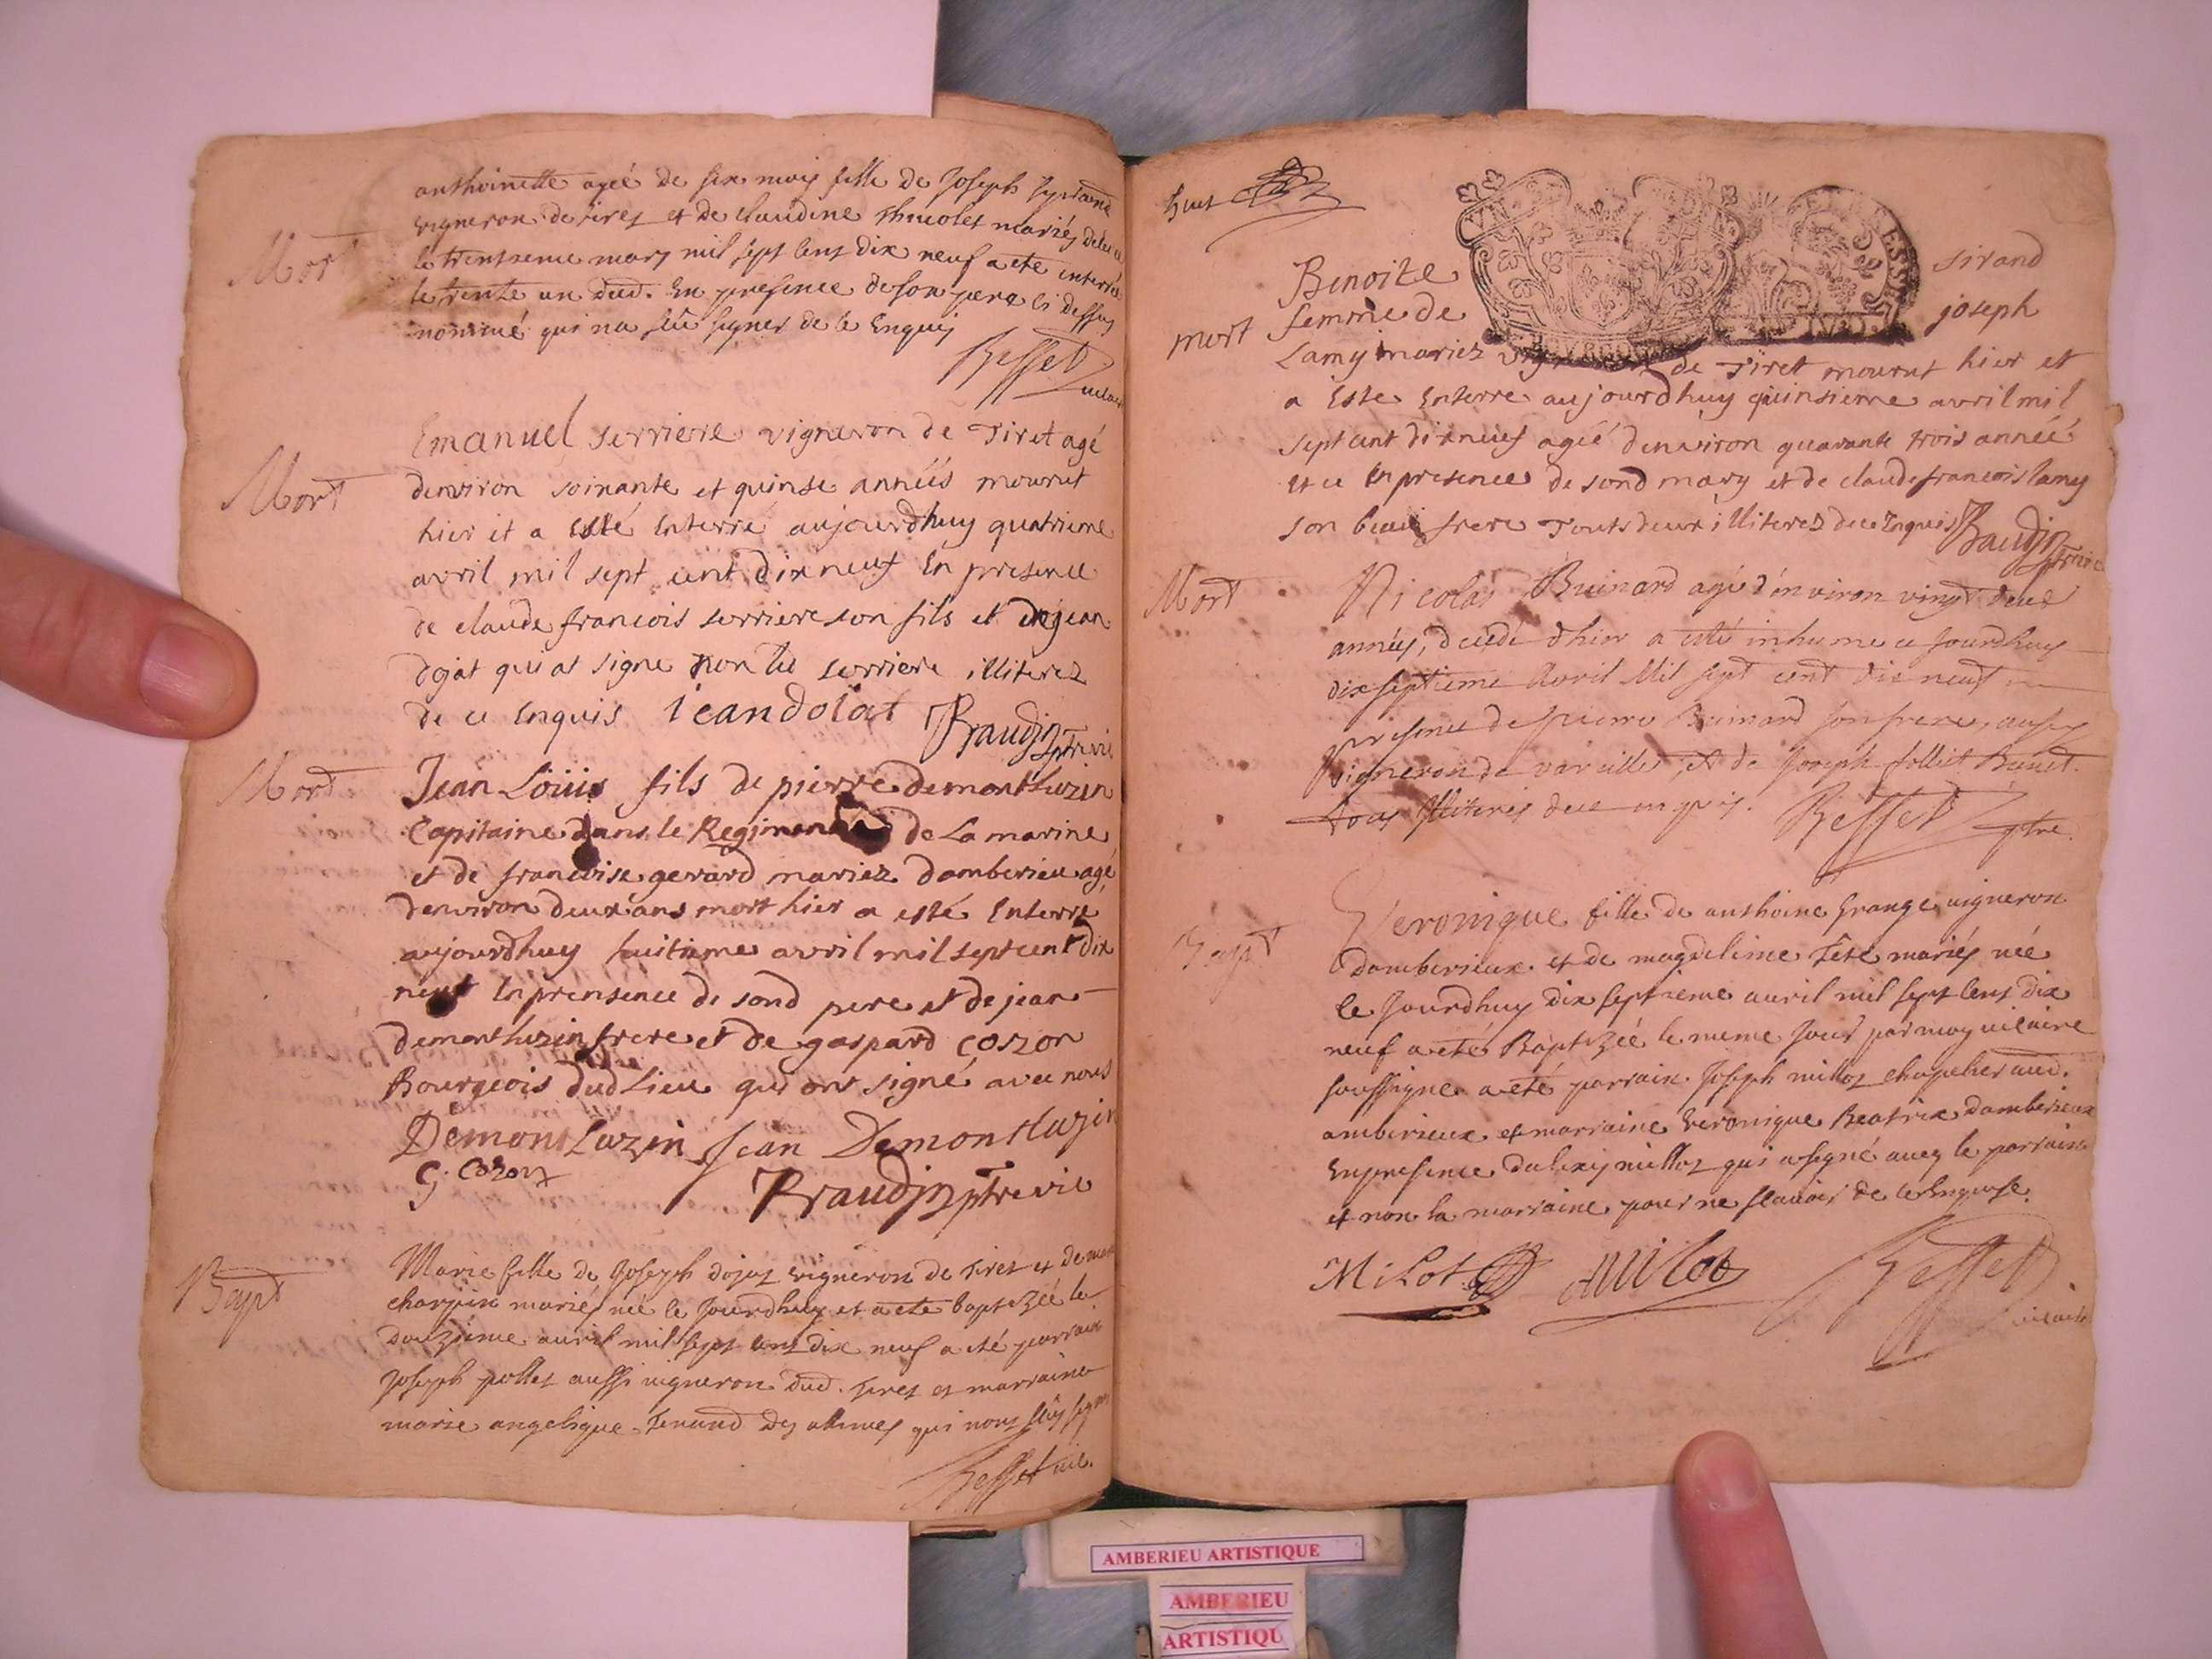 Mort
anthoinette ageé de six mois fille de Joseph
vigneron de tiret et de claudine thuolet mariés
le trentieme mars mil sept cent dix neuf a ete enterrée
le trente un dud. En presence de son pere ci dessus
nommé qui na sçu signer de ce Enquis
Besset
vicaire
Mort
Emanuel serriere vigneron de Tiret agé
denviron soixante et quinse annéés mourut
hier et a Esté Enterré aujourdhuy quatrieme
avril mil sept cent dixneuf En presence
de claude francois serriere son fils et de jean
dojat qui at signe non le serriere illiterez
de ce Enquis Jean dojat
Baudin ptre vic
Mort
Jean Loüis fils de pierre demontluzin
Capitaine dans le Regiment de La marine
et de francoise gerard mariez damberieu agé
denviron deux ans mort hier a esté Enterré
aujourdhuy huitieme avril mil sept cent dix
neuf En prensence de sond pere et de jean
demontluzin frere et de gaspard cozon
Bourgeois dud Lieu qui ont signé avec nous
Demontluzin Jean Demontluzin
G. Cozon
Baudin ptre vic
Bapt
Marie fille de Joseph dojat vigneron de tiret et de marie
charpin mariés née le Jourdhuy et a ete baptizéé le
douzieme avril mil sept cent dix neuf a eté parrain
Joseph pollet aussi vigneron dud. tiret et marraine
marie angelique tenand des allimes qui nont sçu signer
Besset vic.
huit
mort
Benoite sirand
femme de joseph
Lamy mariez vigneron de Tiret mourut hier et
a Este Enterre aujourdhuy quinsieme avril mil
sept cent dixneuf ageé denviron quarante trois annéé
et ce En presence de sond mary et de claude francois lamy
son beau frere Touts deux illiterez de ce Enquis
Baudin ptre vic
Mort
Nicolas Buinard agé d'environ vingt deux
années, decedé d'hier a esté inhume ce Jourdhuy
dix septieme Avril Mil sept cent dix neuf en
presence de pierre Buinard son frere, aussy
vigneron de vareille et de Joseph folliet Benet.
tous illiterés de ce enquis. Besset ptre.
Bapt
Veronique fille de anthoine Grange vigneron
damberieux et de magdeleine tete mariés née
le Jourdhuy dix septieme avril mil sept cent dix
neuf a eté Baptizéé le meme Jour par moy vicaire
soussigne a eté parrain Joseph millot chapelier aud.
amberieux et marraine veronique Beatrix damberieux
En presence dalexis millot qui a signé avec le parrain
et non la marraine pour ne sçavoir de ce Enquise.
Milot Milot Besset
vicaire
AMBERIEU ARTISTIQUE
AMBERIEU
ARTISTIQU